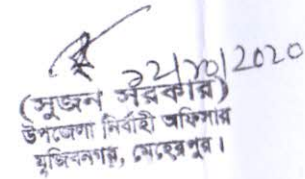 ২২/১০/2020
(সুজন সরকার)
উপজেলা নির্বাহী অফিসার
মুজিবনগর, মেহেরপুর।